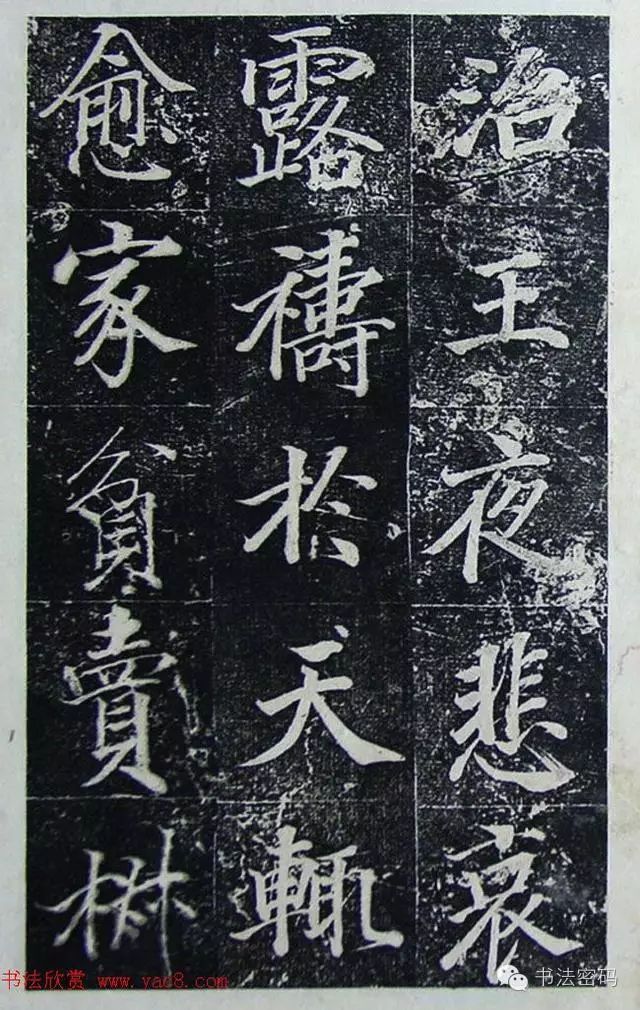 治王夜悲哀
露禱於天輙
愈家貧賣
书法欣赏 www.yac8.com
书法密码